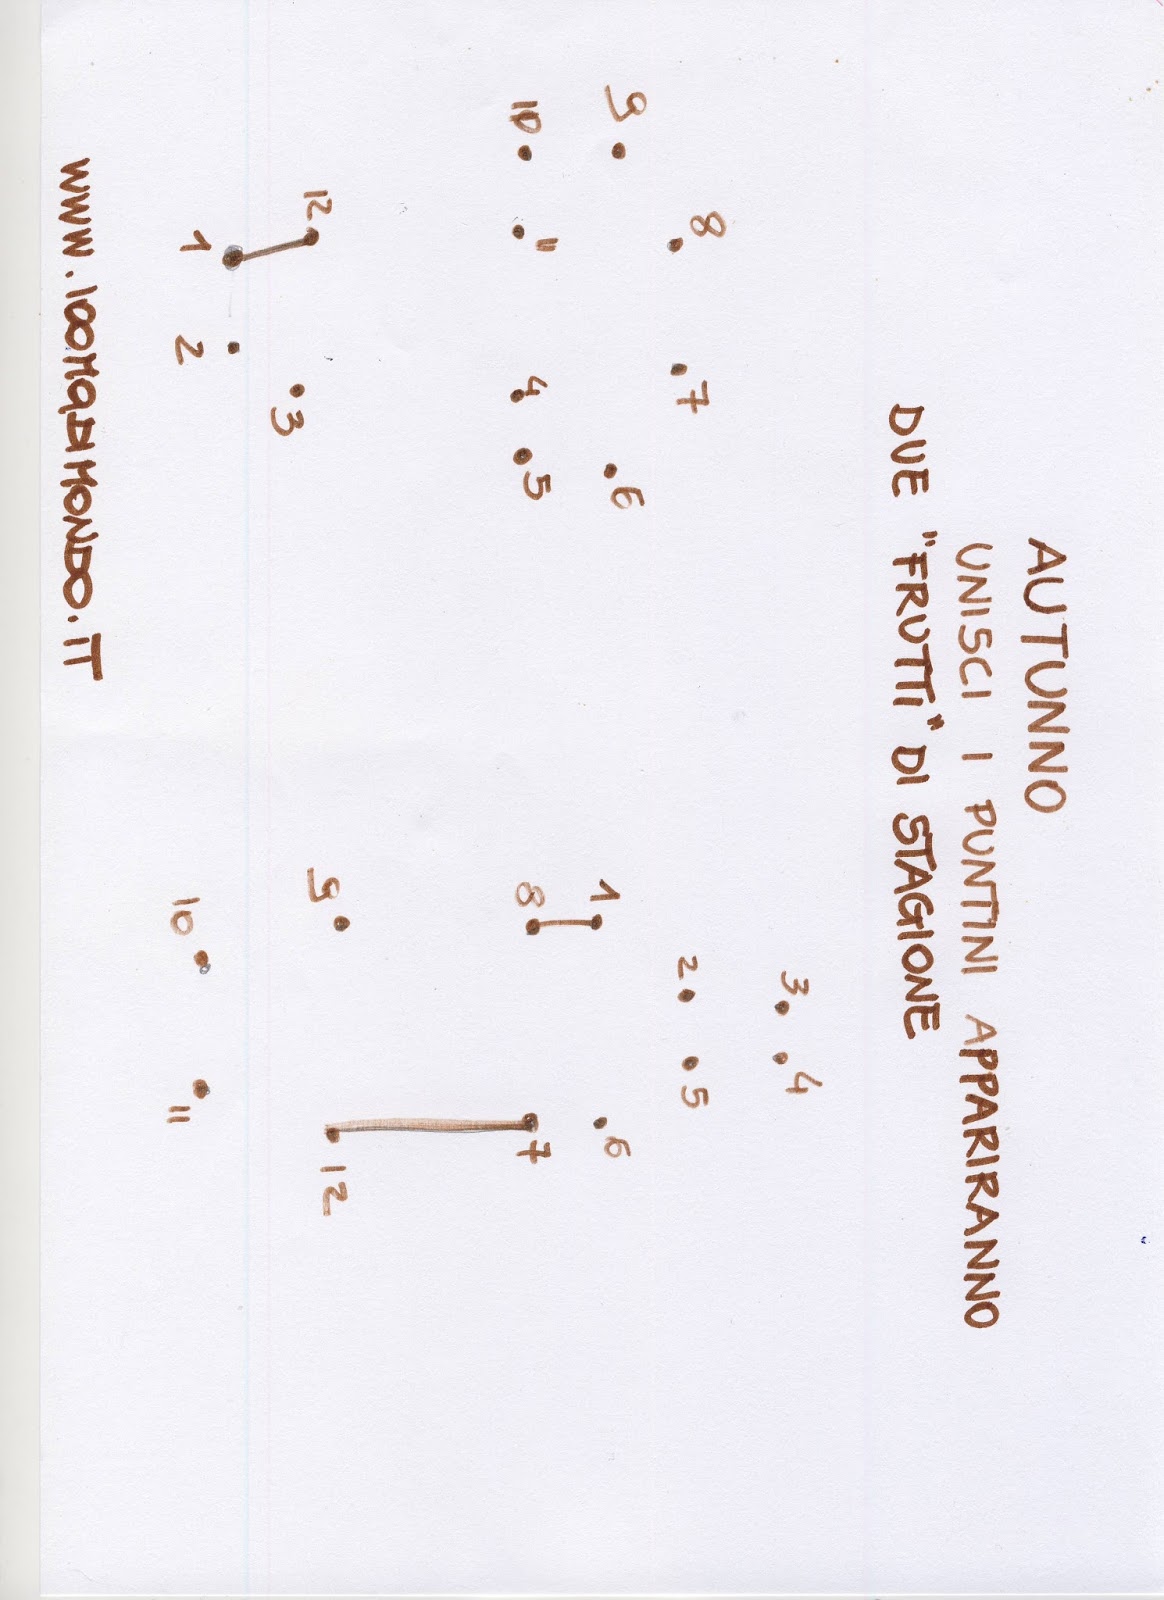 AUTUNNO
UNISCI I PUNTINI APPARIRANNO
DUE "FRUTTI" DI STAGIONE
9
8
7
6
10
11
4
5
12
3
1
2
3
4
2
5
1
6
8
7
9
12
10
11
WWW.100MQDIMONDO.IT